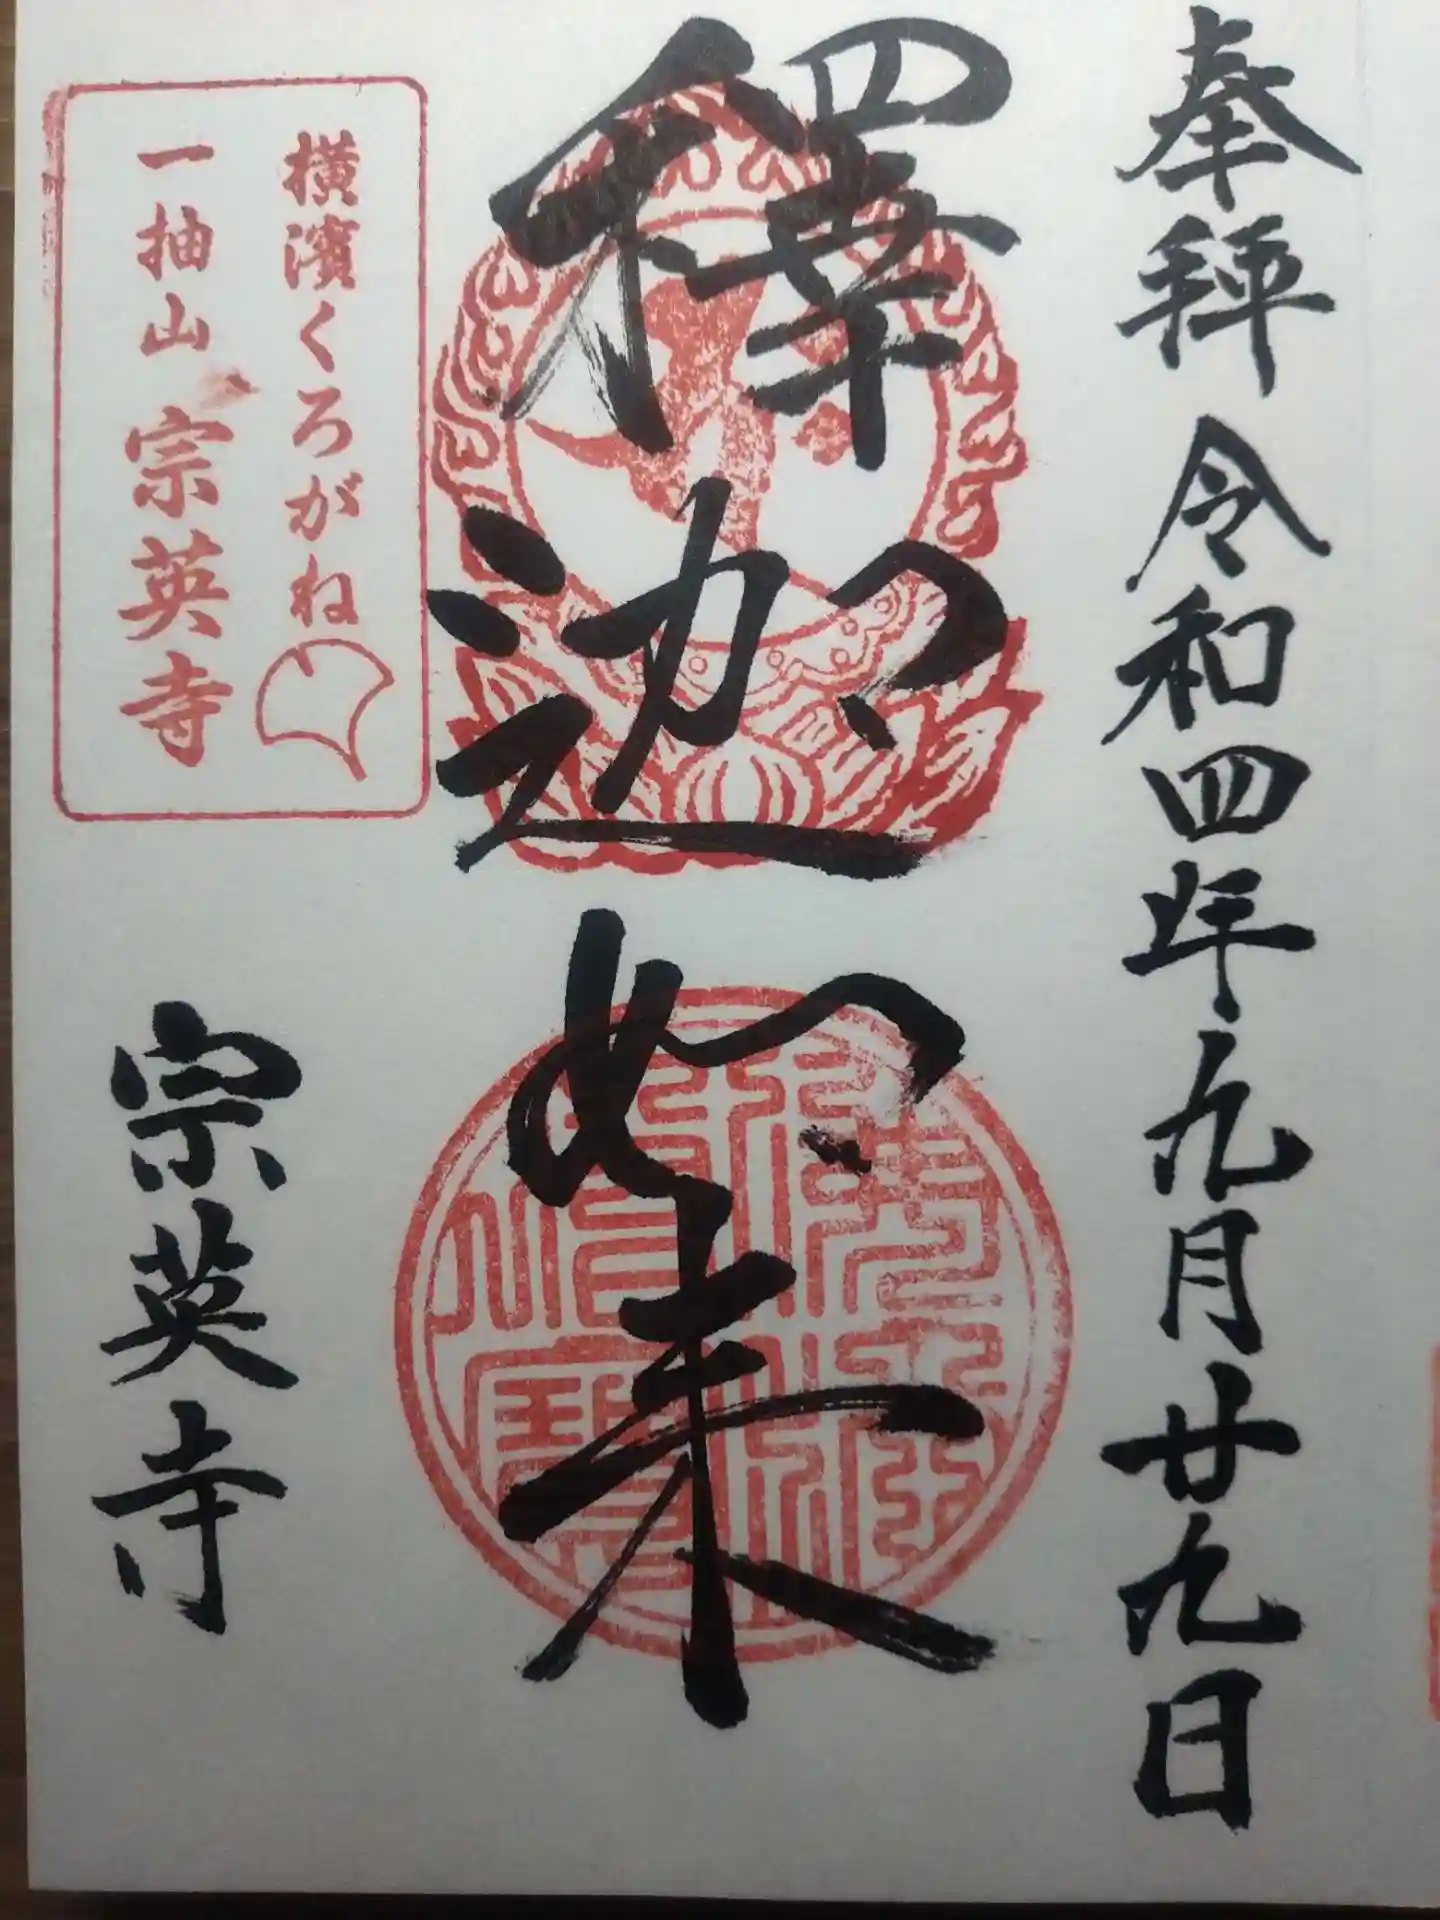 奉拝 令和四年九月廿九日
釋迦如来
横濱くろがね
一抽山 宗英寺
宗英寺